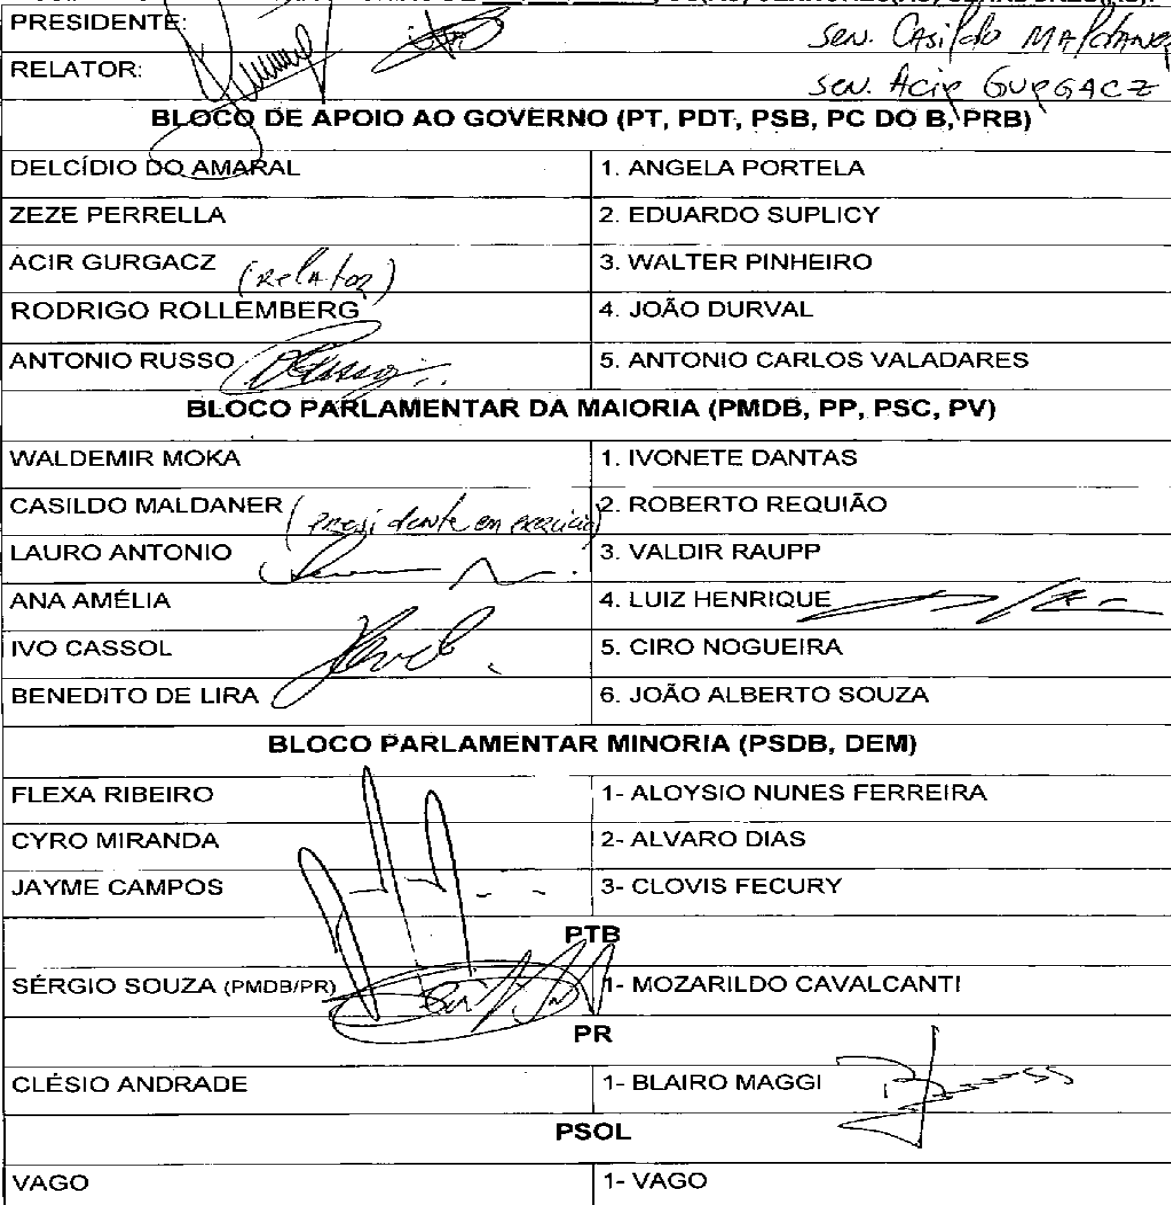 PRESIDENTE: Sen. Casildo Maldaner
RELATOR: Sen. Acir GURGACZ
BLOCO DE APOIO AO GOVERNO (PT, PDT, PSB, PC DO B, PRB)
DELCÍDIO DO AMARAL 1. ANGELA PORTELA
ZEZE PERRELLA 2. EDUARDO SUPLICY
ACIR GURGACZ (Relator) 3. WALTER PINHEIRO
RODRIGO ROLLEMBERG 4. JOÃO DURVAL
ANTONIO RUSSO 5. ANTONIO CARLOS VALADARES
BLOCO PARLAMENTAR DA MAIORIA (PMDB, PP, PSC, PV)
WALDEMIR MOKA 1. IVONETE DANTAS
CASILDO MALDANER (Presidente em exercício) 2. ROBERTO REQUIÃO
LAURO ANTONIO 3. VALDIR RAUPP
ANA AMÉLIA 4. LUIZ HENRIQUE
IVO CASSOL 5. CIRO NOGUEIRA
BENEDITO DE LIRA 6. JOÃO ALBERTO SOUZA
BLOCO PARLAMENTAR MINORIA (PSDB, DEM)
FLEXA RIBEIRO 1- ALOYSIO NUNES FERREIRA
CYRO MIRANDA 2- ALVARO DIAS
JAYME CAMPOS 3- CLOVIS FECURY
PTB
SÉRGIO SOUZA (PMDB/PR) 1- MOZARILDO CAVALCANTI
PR
CLÉSIO ANDRADE 1- BLAIRO MAGGI
PSOL
VAGO 1- VAGO